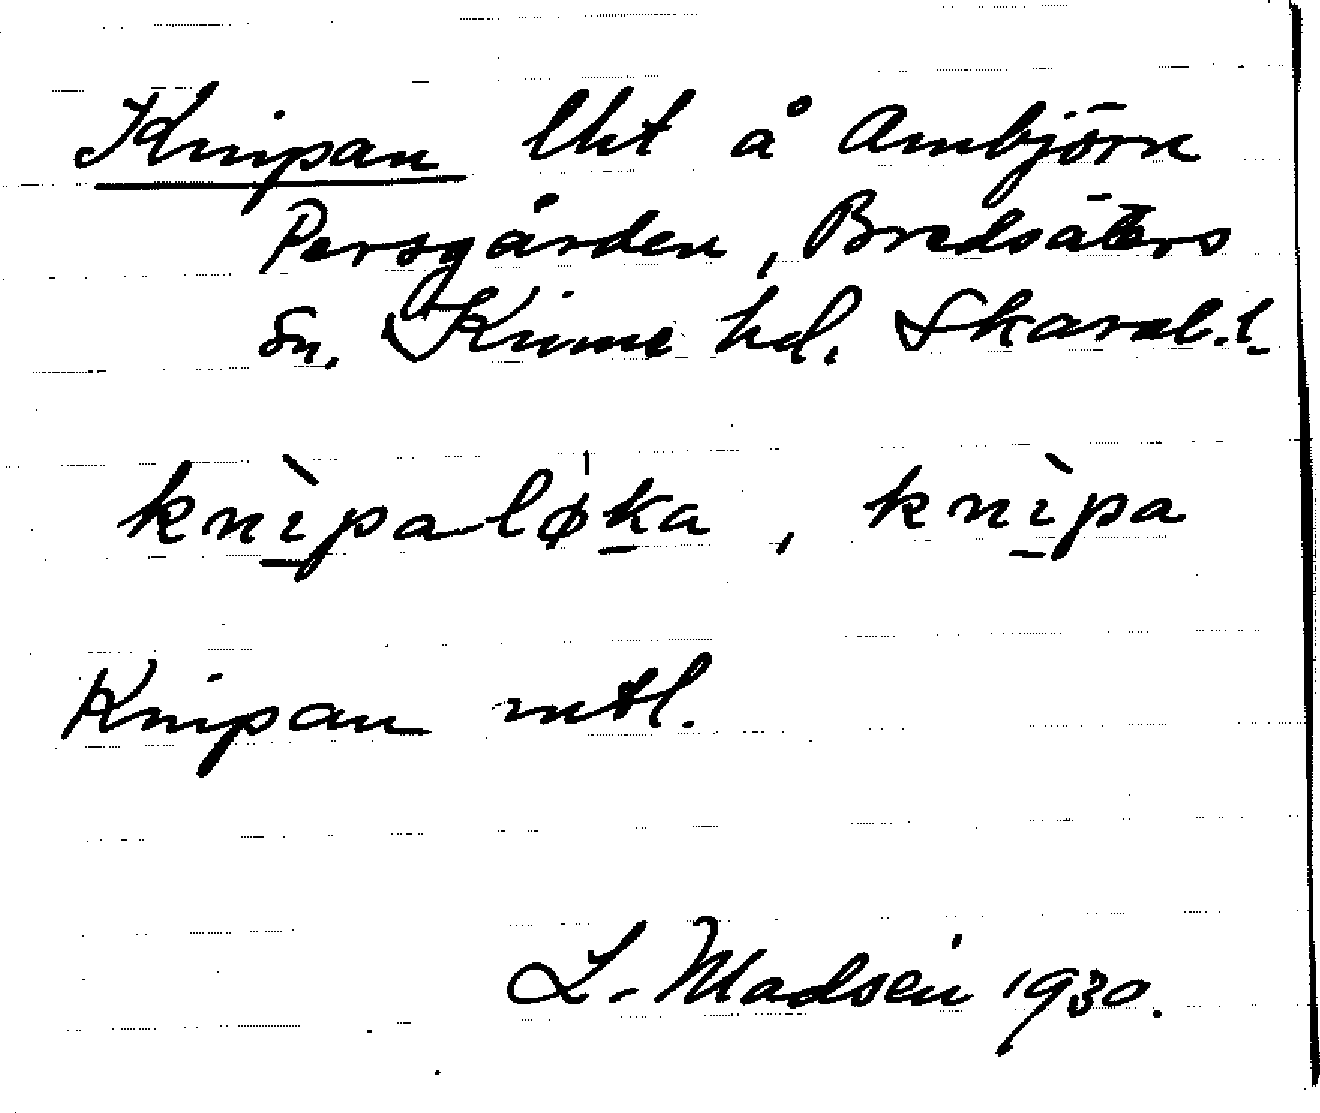 Knipan lht å Ambjörn
Persgården, Bredsäters
Sn. Kinne hd. Skarab.l.
knìpaløka, knìpa
Knipan mtl.
L. Madsén 1930.